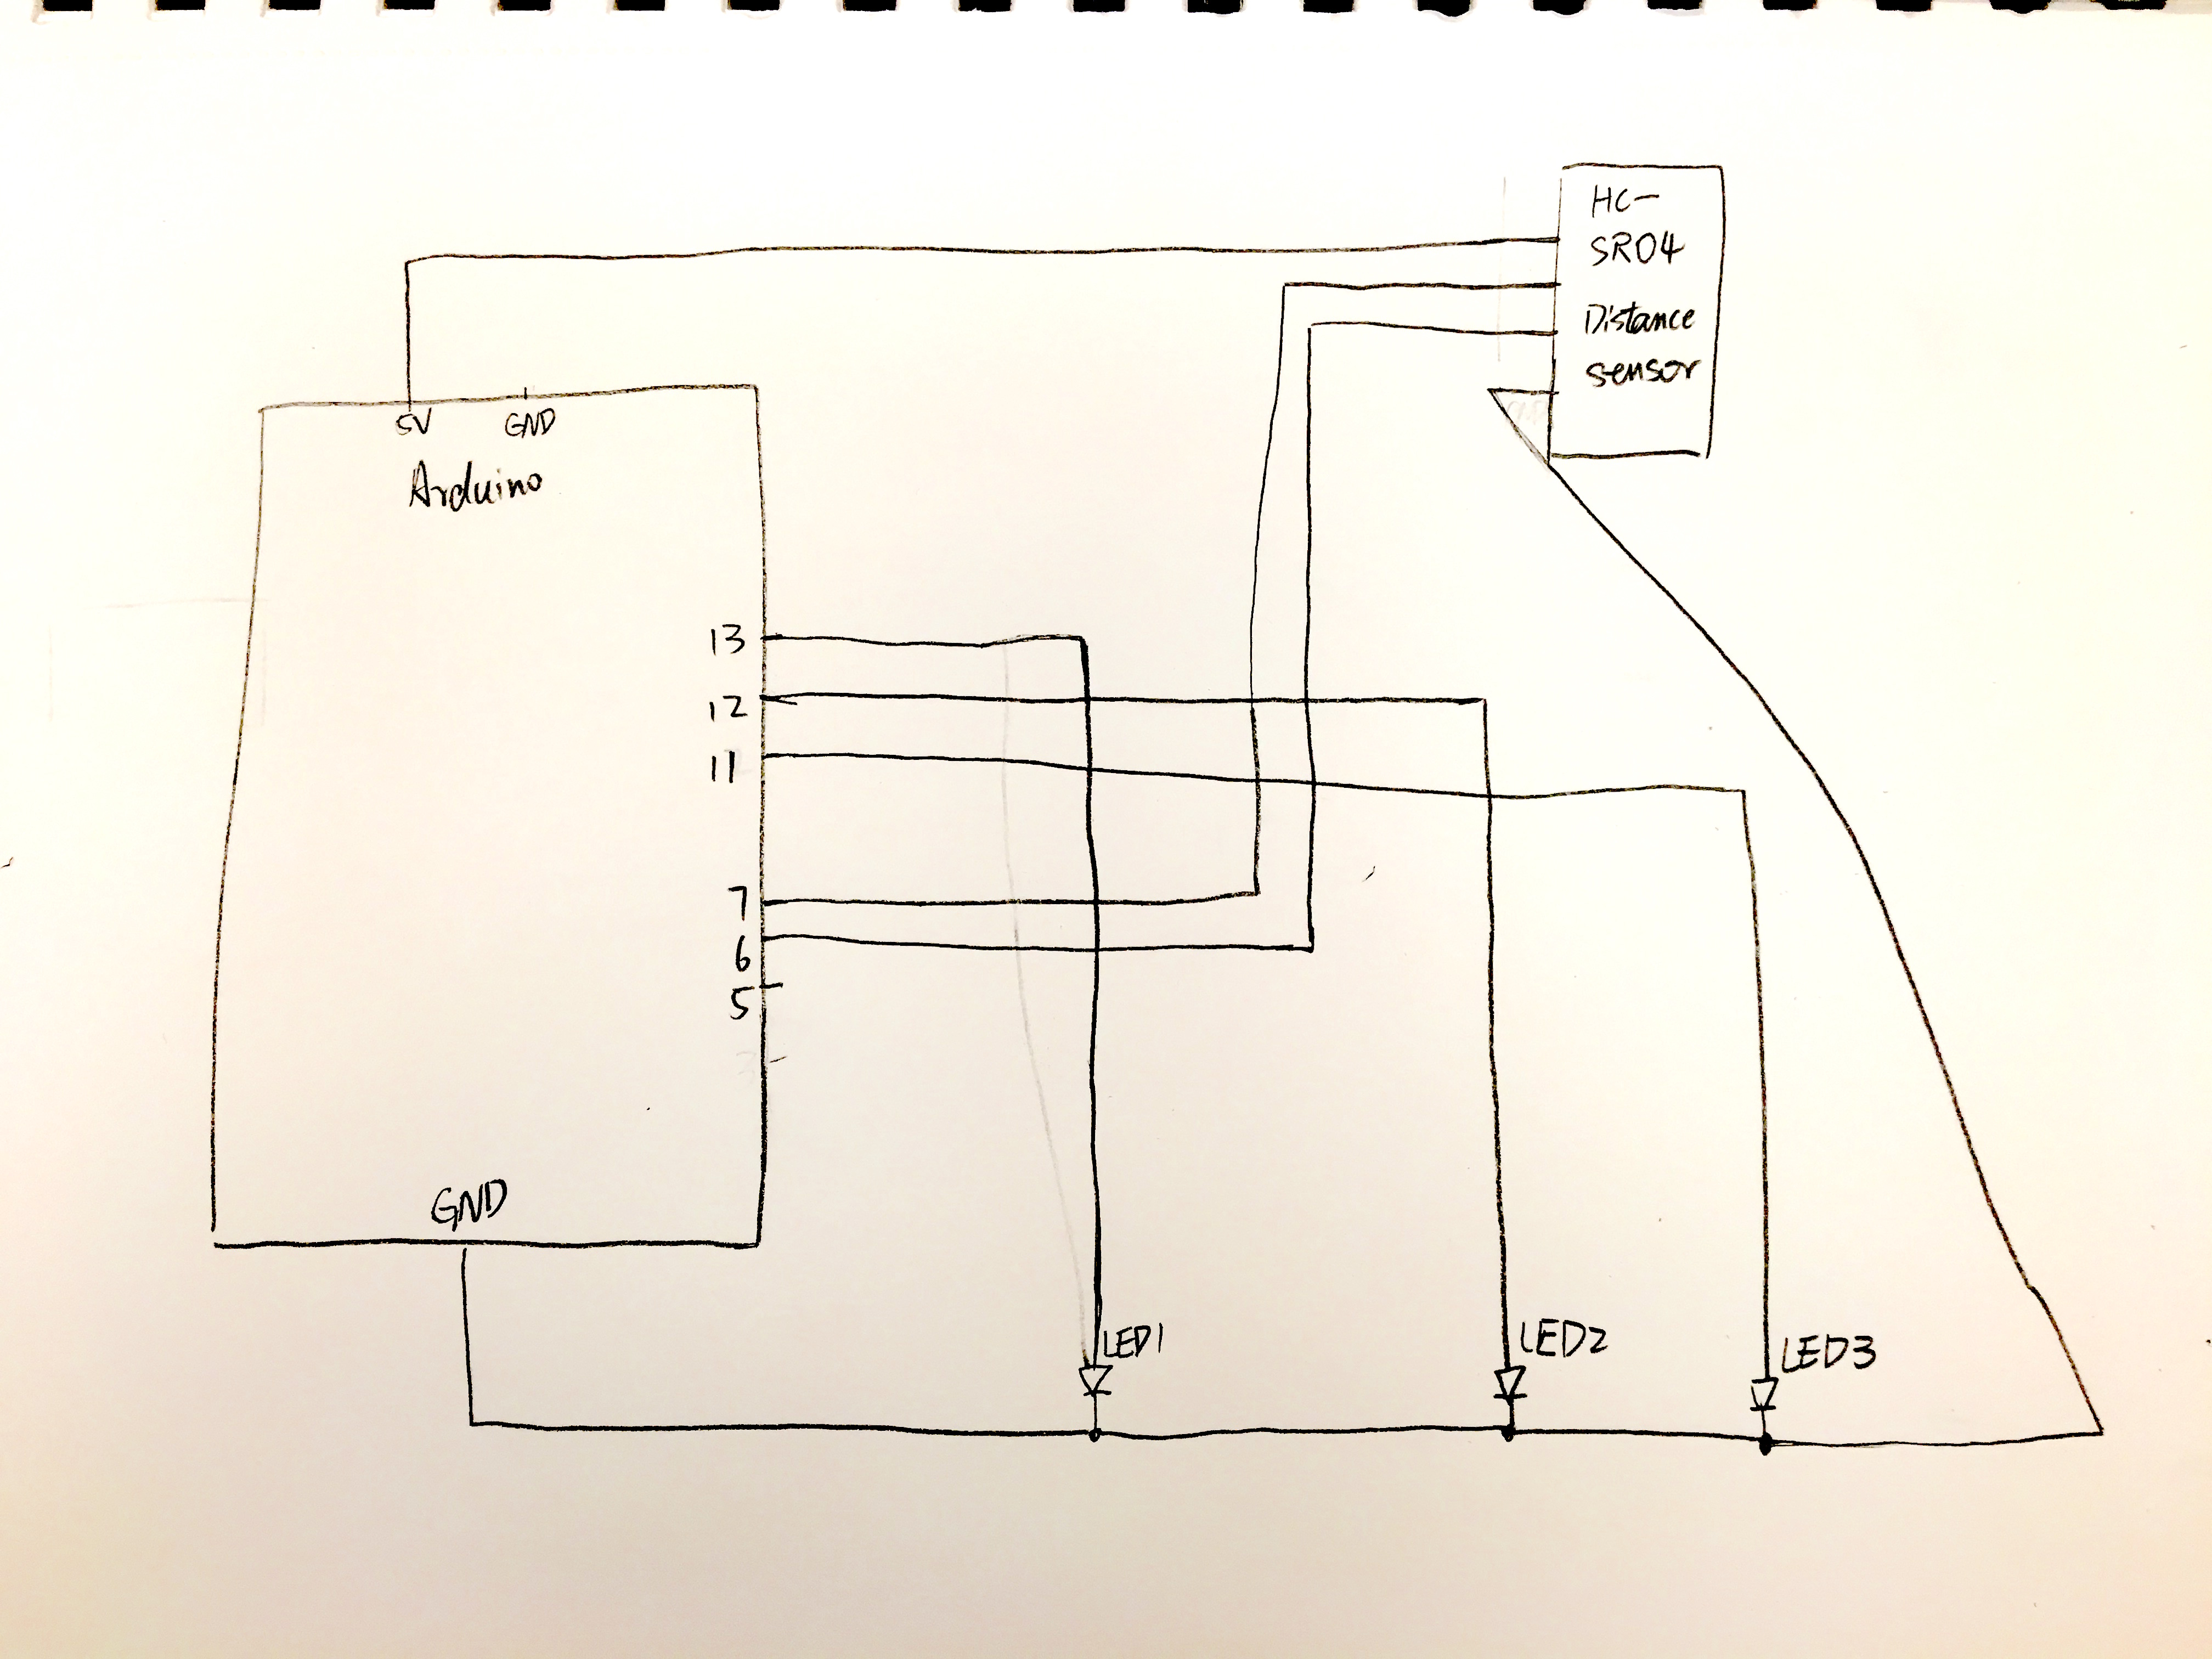 HC-
SR04
Distance
sensor
5V
GND
Arduino
13
12
11
7
6
5
GND
LED1
LED2
LED3